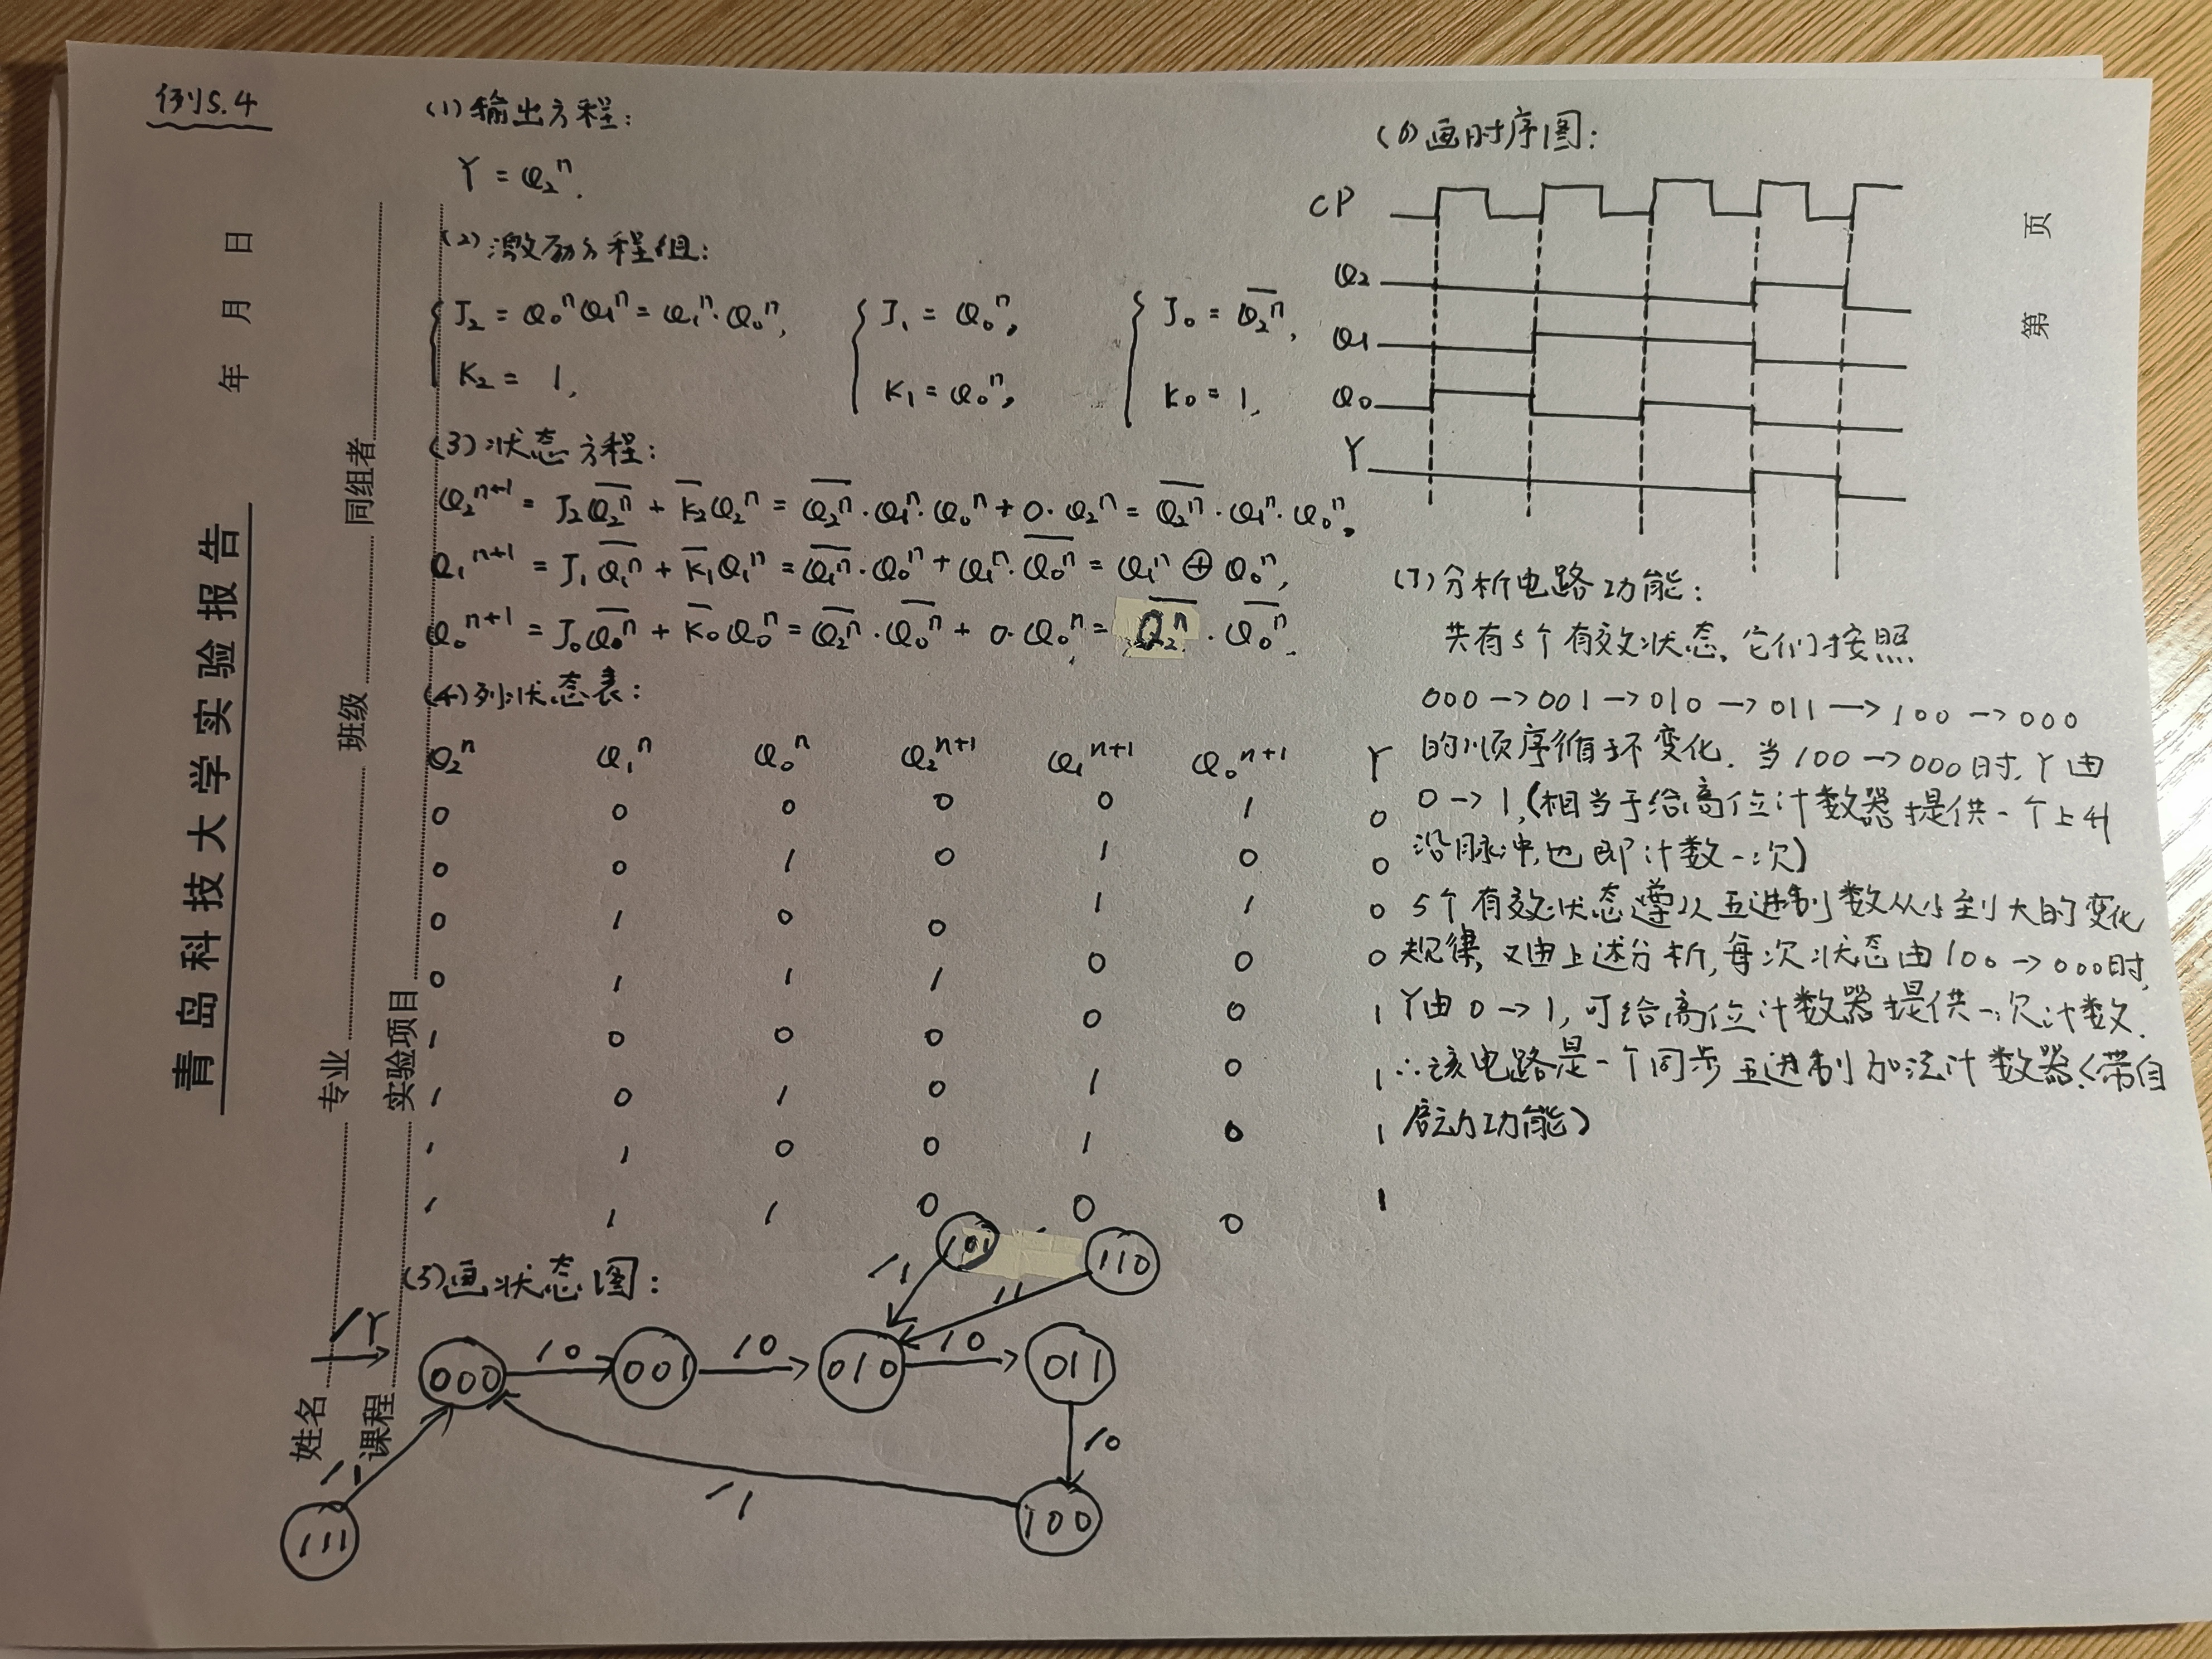 例5.4
青岛科技大学实验报告
年 月 日
姓名 专业 班级 同组者
课程 实验项目
第 页
(1)输出方程:
Y = Q₂ⁿ.
(2)激励方程组:
J₂ = Q₀ⁿQ₁ⁿ = Q₁ⁿ·Q₀ⁿ, J₁ = Q₀ⁿ, J₀ = Q̅₂ⁿ,
K₂ = 1, K₁ = Q₀ⁿ, K₀ = 1,
(3)状态方程:
Q₂ⁿ⁺¹ = J₂Q̅₂ⁿ + K̅₂Q₂ⁿ = Q̅₂ⁿ·Q₁ⁿ·Q₀ⁿ + 0·Q₂ⁿ = Q̅₂ⁿ·Q₁ⁿ·Q₀ⁿ,
Q₁ⁿ⁺¹ = J₁Q̅₁ⁿ + K̅₁Q₁ⁿ = Q̅₁ⁿ·Q₀ⁿ + Q₁ⁿ·Q̅₀ⁿ = Q₁ⁿ ⊕ Q₀ⁿ,
Q₀ⁿ⁺¹ = J₀Q̅₀ⁿ + K̅₀Q₀ⁿ = Q̅₂ⁿ·Q̅₀ⁿ + 0·Q₀ⁿ = Q̅₂ⁿ·Q̅₀ⁿ.
(4)列状态表:
Q₂ⁿ Q₁ⁿ Q₀ⁿ Q₂ⁿ⁺¹ Q₁ⁿ⁺¹ Q₀ⁿ⁺¹ Y
0 0 0 0 0 1 0
0 0 1 0 1 0 0
0 1 0 0 1 1 0
0 1 1 1 0 0 0
1 0 0 0 0 0 1
1 0 1 0 1 0 1
1 1 0 0 1 0 1
1 1 1 0 0 0 1
(5)画状态图:
/Y
101 110
/1 /1
000 /0 001 /0 010 /0 011
/1 /0
111 /1 100
(6)画时序图:
CP
Q₂
Q₁
Q₀
Y
(7)分析电路功能:
共有5个有效状态,它们按照
000→001→010→011→100→000
的顺序循环变化.当100→000时,Y由
0→1,(相当于给高位计数器提供一个上升
沿脉冲,也即计数一次)
5个有效状态遵从五进制数从小到大的变化
规律,又由上述分析,每次状态由100→000时,
Y由0→1,可给高位计数器提供一次计数.
∴该电路是一个同步五进制加法计数器.(带自
启动功能)